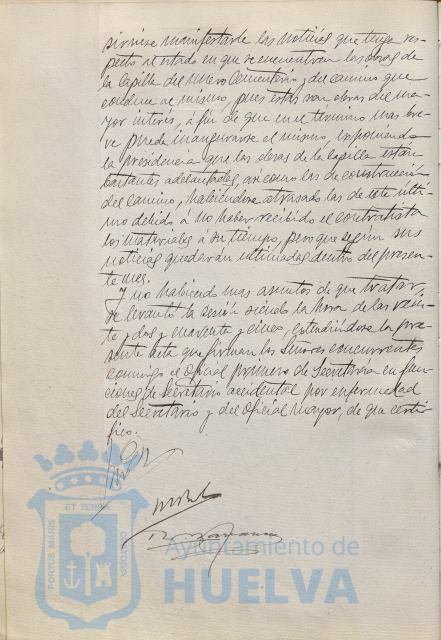 sirviese manifestarle las noticias que tenga res-
pecto al estado en que se encuentran las obras de
la Capilla del nuevo Cementerio y del camino que
conduce al mismo, pues estas son obras del ma-
yor interés, á fin de que en el término mas bre-
ve pueda inaugurarse el mismo, exponiendo
la presidencia que las obras de la capilla están
bastantes adelantadas, asi como las de construcción
del camino, habiéndose atrasado las de este últi-
mo debido á no haber recibido el contratista
los materiales á su tiempo, pero que según sus
noticias quedarán ultimadas dentro del presen-
te mes.
Y no habiendo mas asuntos de que tratar,
se levantó la sesión siendo la hora de las vein-
te y dos y cuarenta y cinco, extendiéndose la pre-
sente acta que firman los Señores concurrentes
conmigo el Oficial primero de Secretaría en fun-
ciones de Secretario accidental por enfermedad
del Secretario y del Oficial Mayor, de que certi-
fico.
PORTUS MARIS
ET TERRE
CUSTODIA
Ayuntamiento de
HUELVA